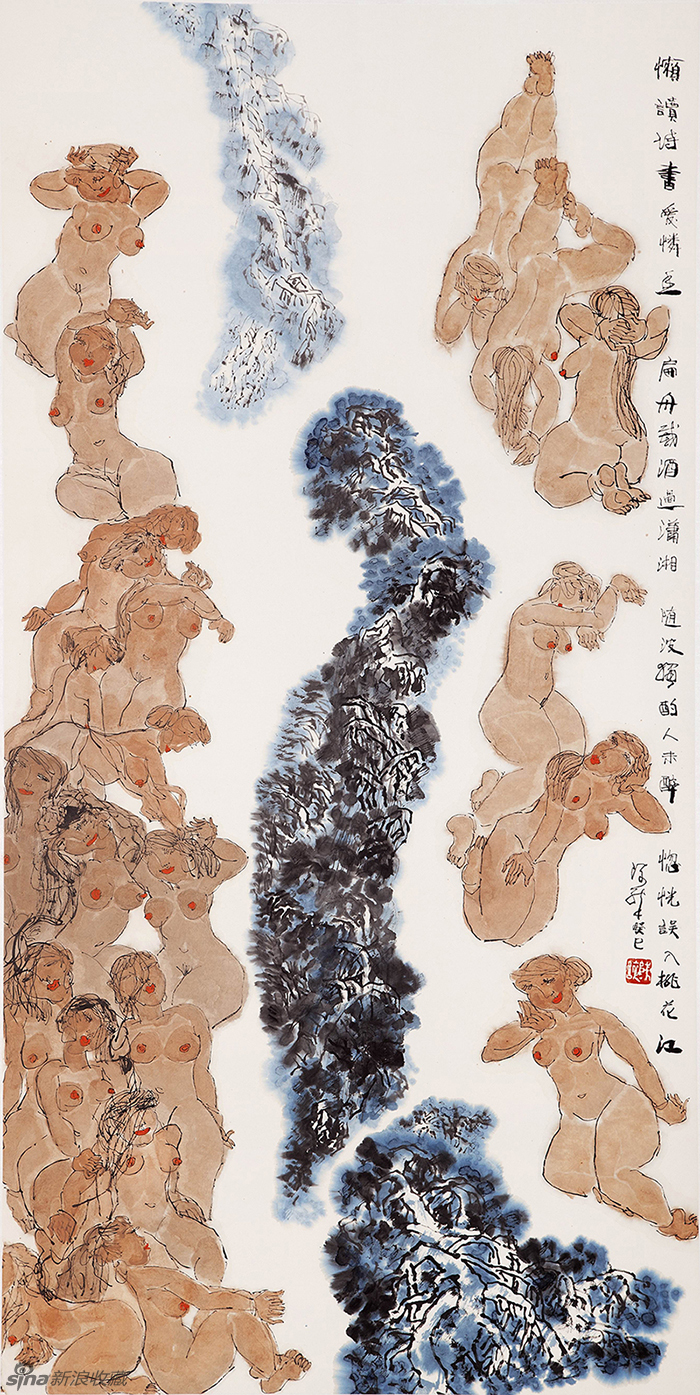 懶讀詩書愛憐 扁舟載酒過瀟湘 隨波獨酌人未醉 惚恍誤入桃花江
癸巳
sina新浪收藏